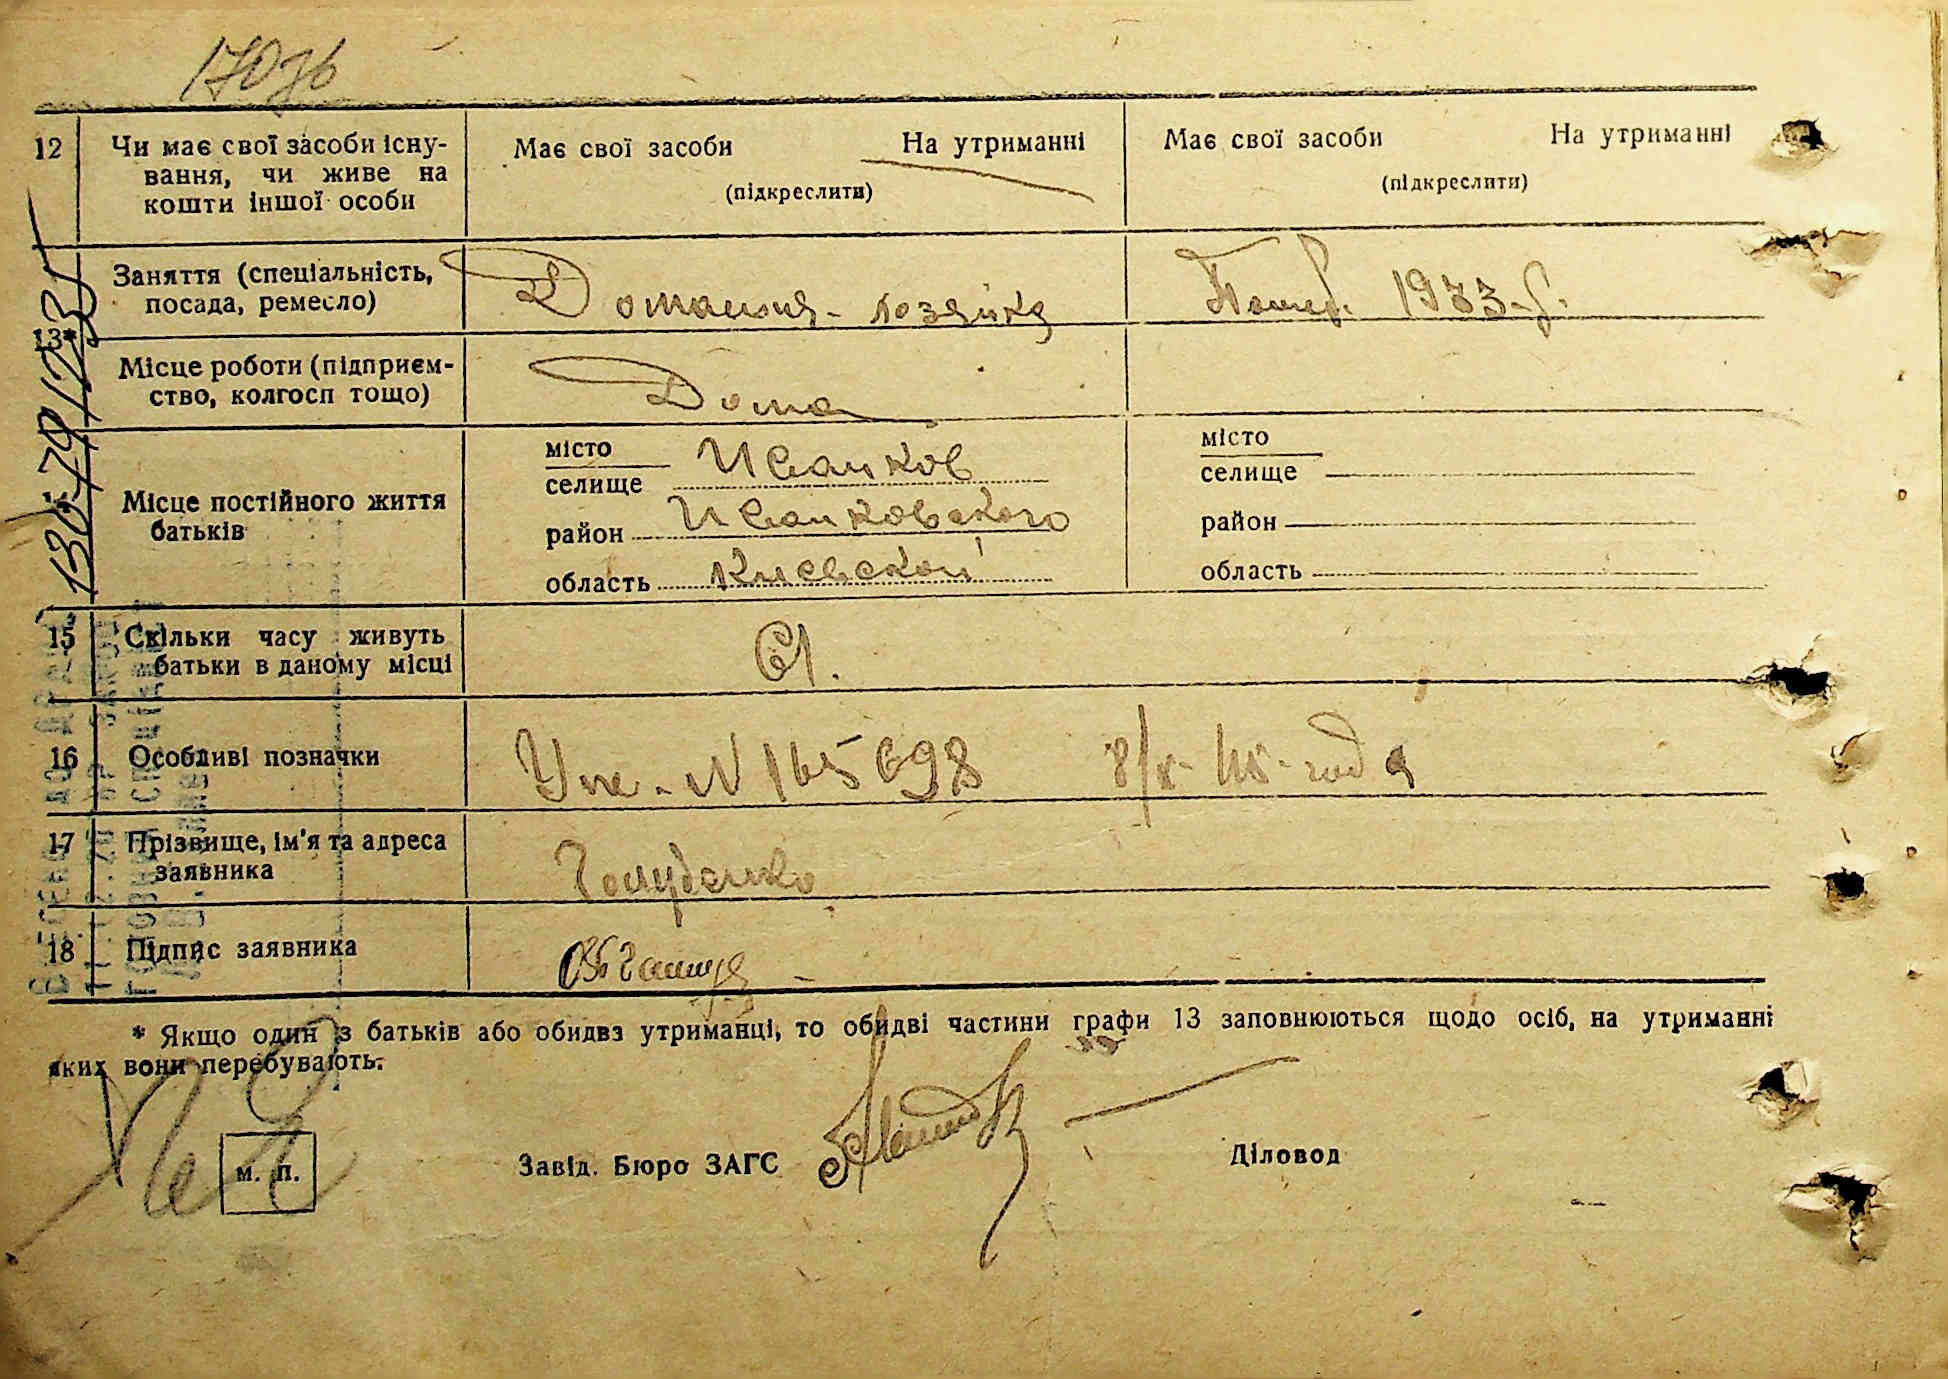 12 Чи має свої засоби існу-
вання, чи живе на
кошти іншої особи
Має свої засоби На утриманні
(підкреслити)
Має свої засоби На утриманні
(підкреслити)
13*
Заняття (спеціальність,
посада, ремесло)
Домашня-хозяйка
1933 г.
Місце роботи (підприєм-
ство, колгосп тощо)
Дома
Місце постійного життя
батьків
місто
селище
Иванков
район Иванковского
область Киевской
місто
селище
район
область
15 Скільки часу живуть
батьки в даному місці
16 Особливі позначки
№ 165698
года
17 Прізвище, ім'я та адреса
заявника
18 Підпис заявника
* Якщо один з батьків або обидвз утриманці, то обидві частини графи 13 заповнюються щодо осіб, на утриманні
яких вони перебувають.
М. П.
Завід. Бюро ЗАГС
Діловод